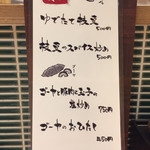 ゆでたて枝豆
500円
枝豆のスパイス炒め
500円
ゴーヤ
ゴーヤと豚肉と玉子の
塩炒め
750円
ゴーヤのおひたし
450円